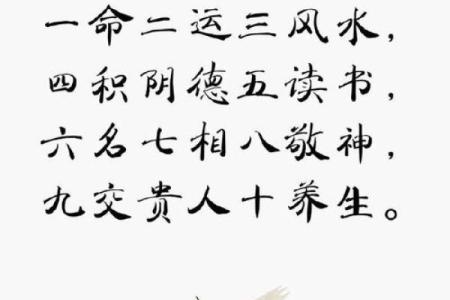 一命二运三风水，
四积阴德五读书，
六名七相八敬神，
九交贵人十养生。